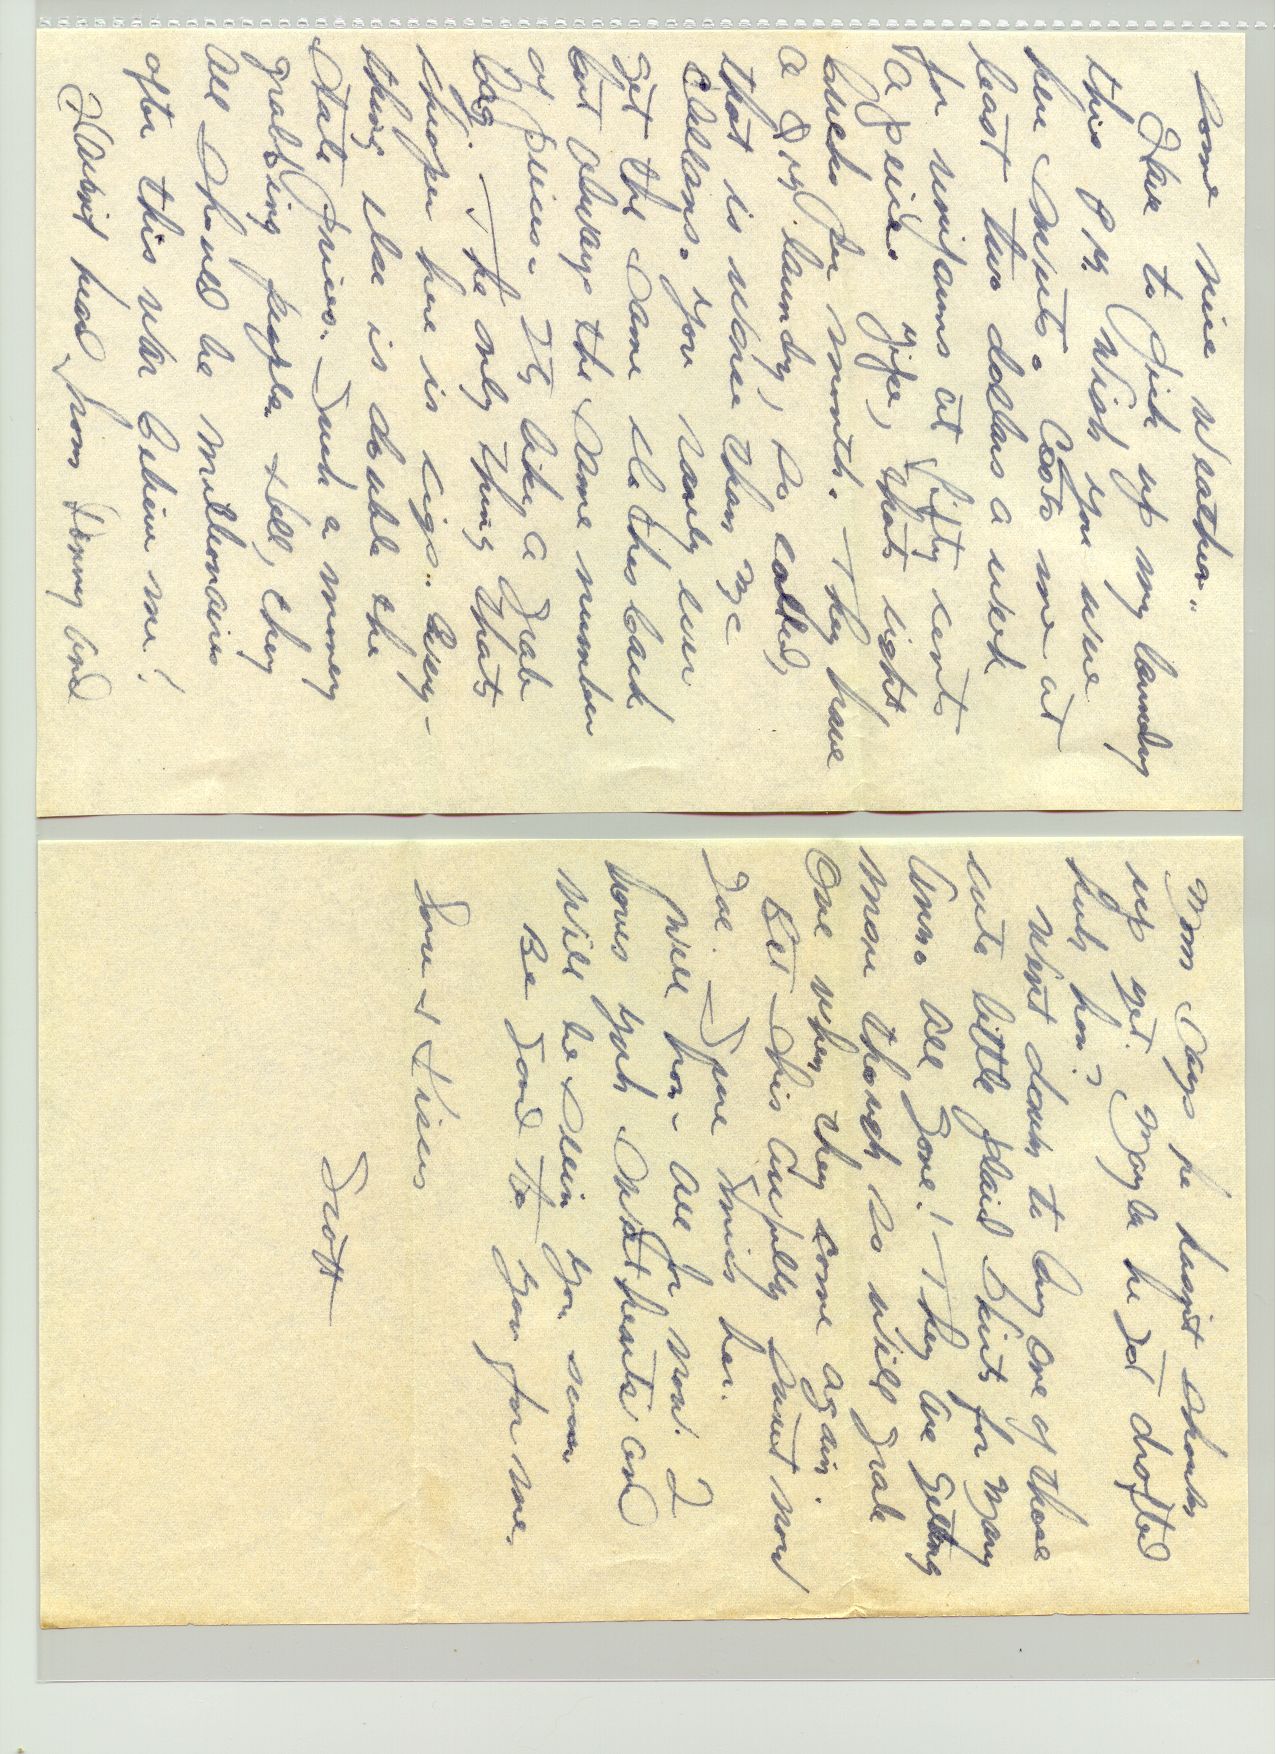 some nice weather.
Have to pick up my laundry
this P.M. Wish you were
here Sweets. Costs me at
least two dollars a week
for uniforms at fifty cents
a piece. Yipe, thats eight
bucks per month. They have
a dry laundry, so called,
that is worse than Mc
Clellans. You rarely ever
get the same clothes back
but always the same number
of pieces. Its like a grab
bag. The only thing thats
cheaper here is cigs. Every-
thing else is double the
State prices. Such a money
grabbing people. Hell, they
all should be millionaires
after this war believe me!
Havent head from Denny and
Mom says he hasnt shown
up yet. Maybe he got drafted
huh hon?
Went down to buy one of those
cute little plaid skirts for Mary
Ann. All gone! They are getting
more though so will grab
one when they come again.
Bet shis awfully sweet now
Joe. Sure miss her.
Well hon - all for now. I
loves yuh sweethearts and
will be seein you soon
Be good to you for me.
Love & Kisses
Scott